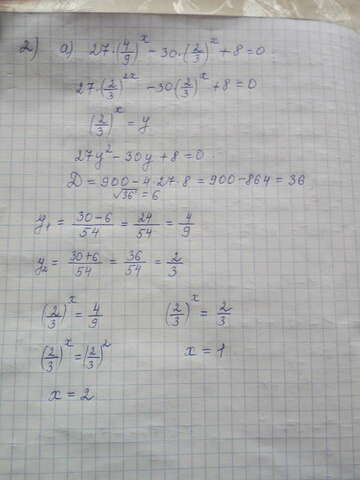 2) а) 27·(4/9)^x − 30·(2/3)^x + 8 = 0
27·(2/3)^2x − 30(2/3)^x + 8 = 0
(2/3)^x = y
27y² − 30y + 8 = 0
D = 900 − 4·27·8 = 900 − 864 = 36
√36 = 6
y₁ = (30−6)/54 = 24/54 = 4/9
y₂ = (30+6)/54 = 36/54 = 2/3
(2/3)^x = 4/9 (2/3)^x = 2/3
(2/3)^x = (2/3)² x = 1
x = 2